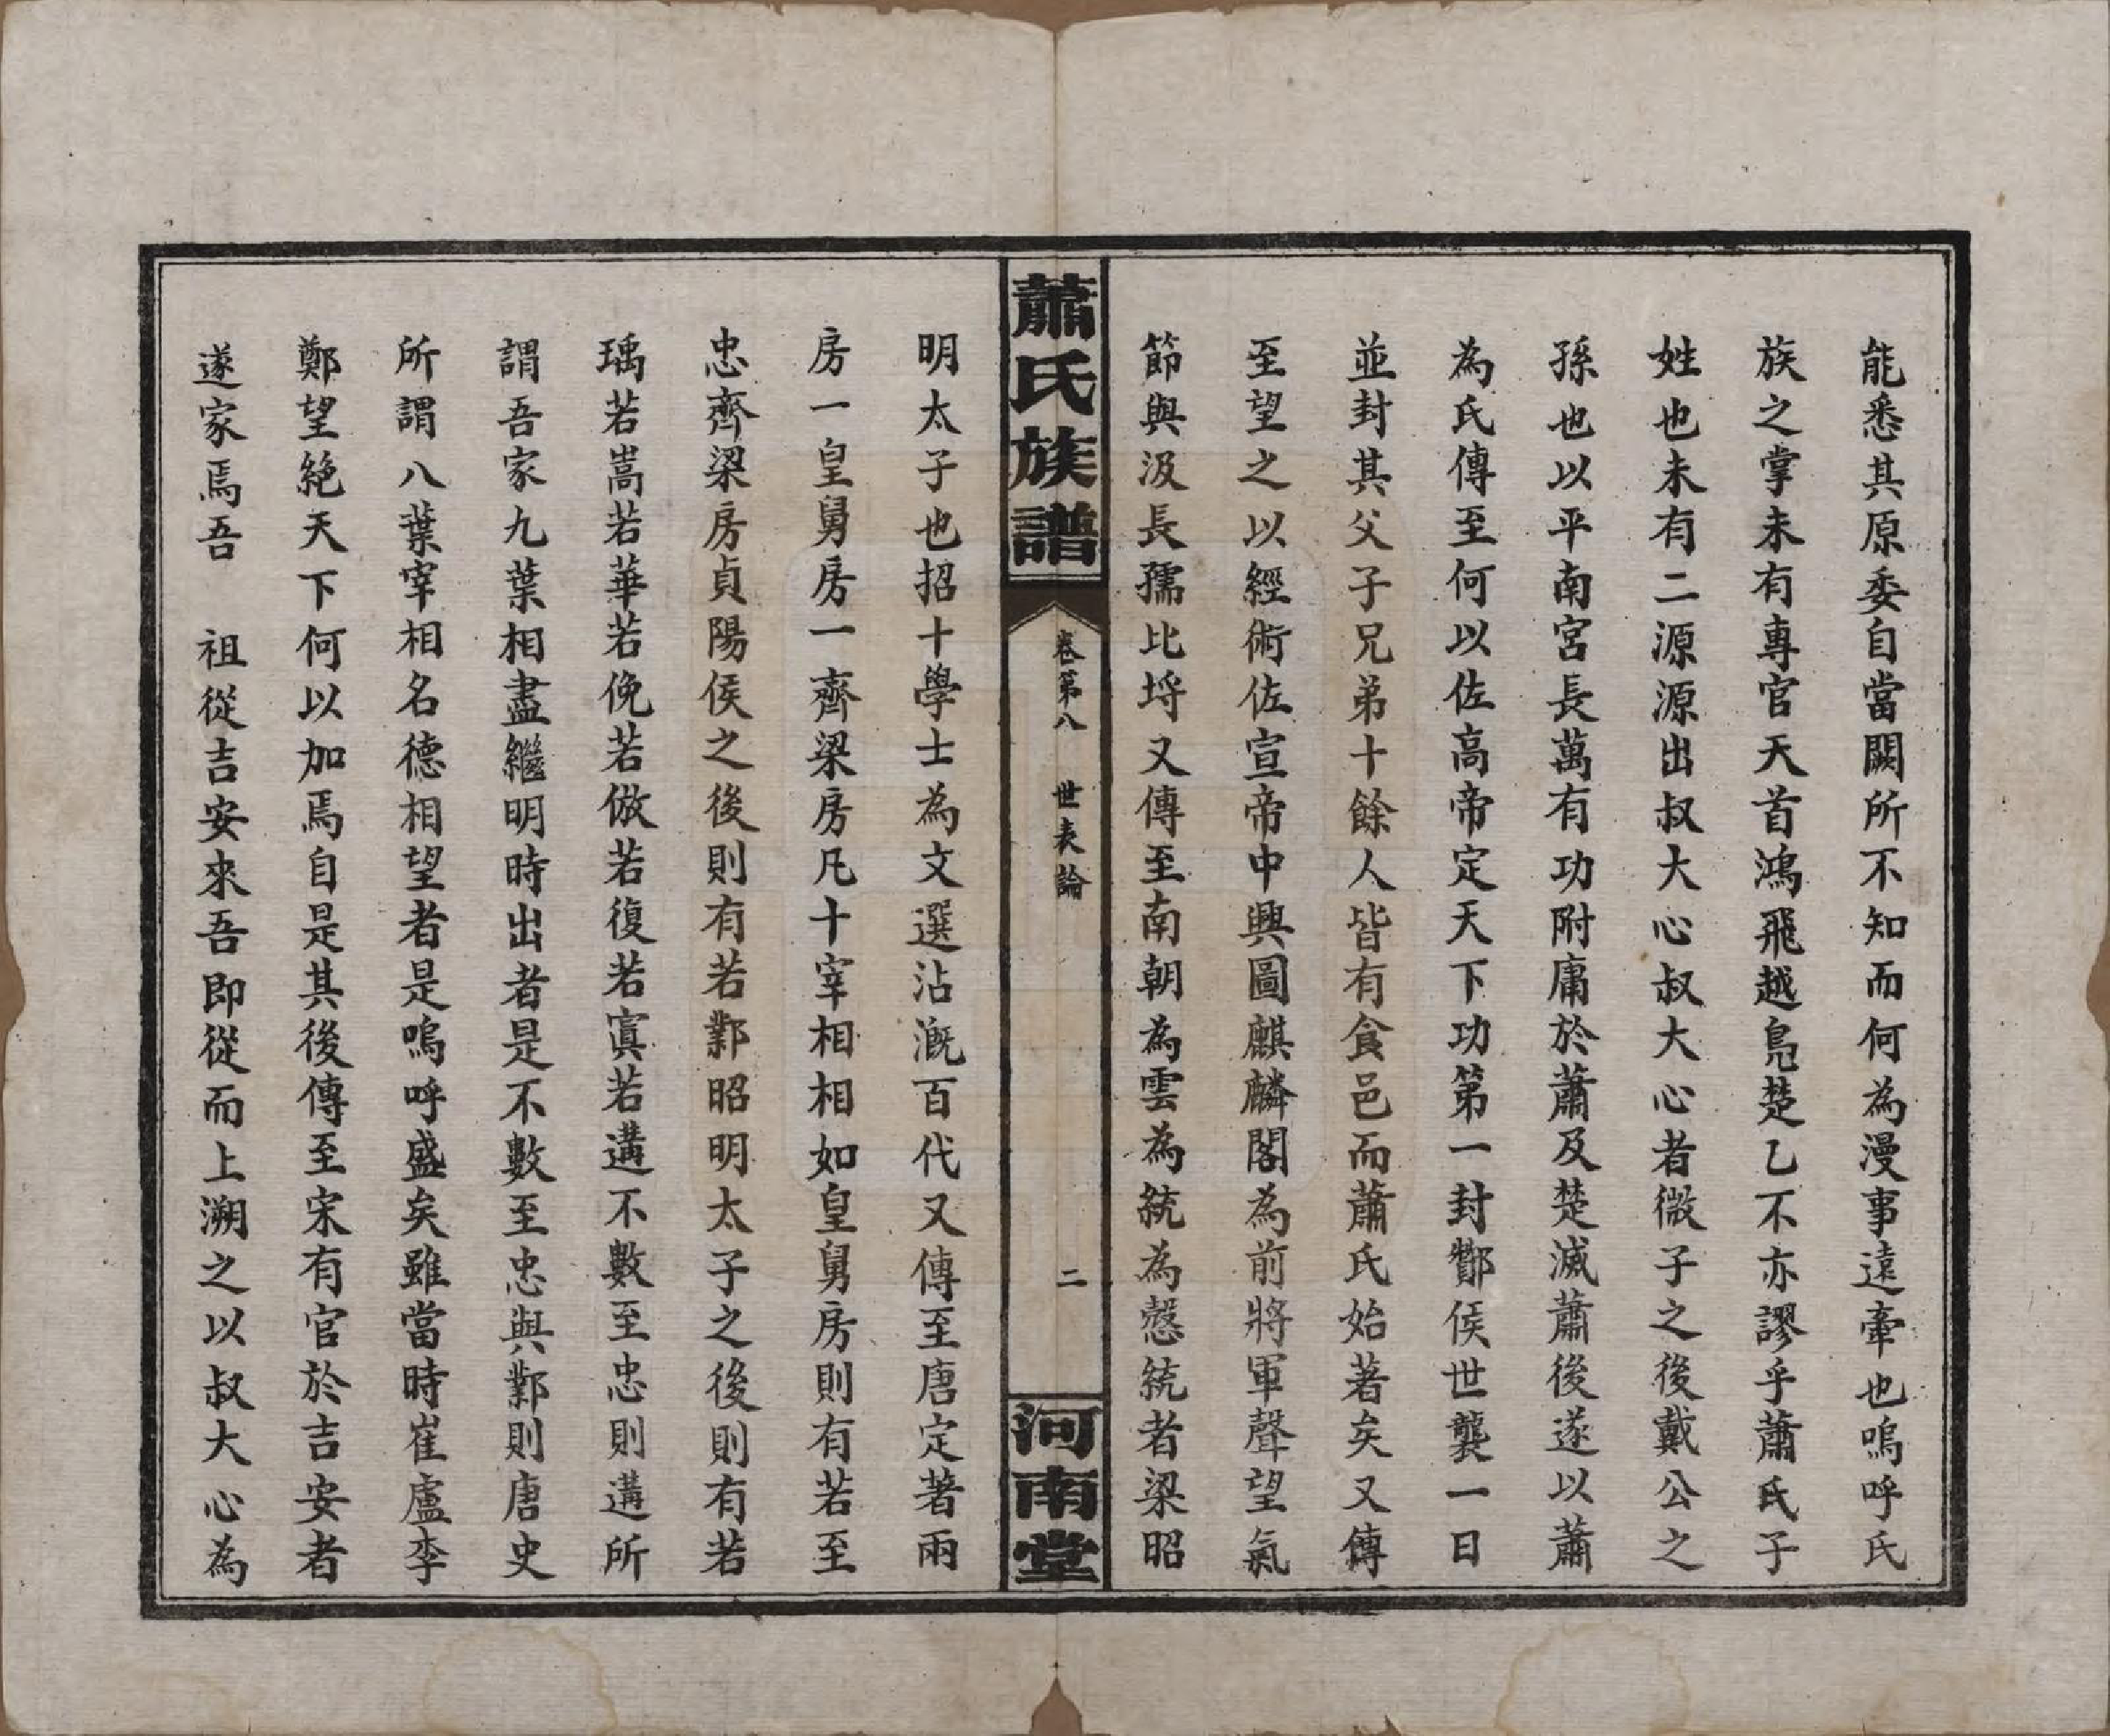 能悉其原委自當闕所不知而何為漫事遠牽也嗚呼氏
族之掌未有專官天首鴻飛越鳧楚乙不亦謬乎蕭氏子
姓也未有二源源出叔大心叔大心者微子之後戴公之
孫也以平南宮長萬有功附庸於蕭及楚滅蕭後遂以蕭
為氏傳至何以佐高帝定天下功第一封酇侯世襲一日
並封其父子兄弟十餘人皆有食邑而蕭氏始著矣又傳
至望之以經術佐宣帝中興圖麒麟閣為前將軍聲望氣
節與汲長孺比埒又傳至南朝為雲為統為愨統者梁昭
蕭氏族譜
卷第八 世表論
二
河南堂
明太子也招十學士為文選沾溉百代又傳至唐定著兩
房一皇舅房一齊梁房凡十宰相相如皇舅房則有若至
忠齊梁房貞陽侯之後則有若鄴昭明太子之後則有若
瑀若嵩若華若俛若倣若復若寘若遘不數至忠則遘所
謂吾家九葉相盡繼明時出者是不數至忠與鄴則唐史
所謂八葉宰相名德相望者是嗚呼盛矣雖當時崔盧李
鄭望絕天下何以加焉自是其後傳至宋有官於吉安者
遂家焉吾 祖從吉安來吾即從而上溯之以叔大心為